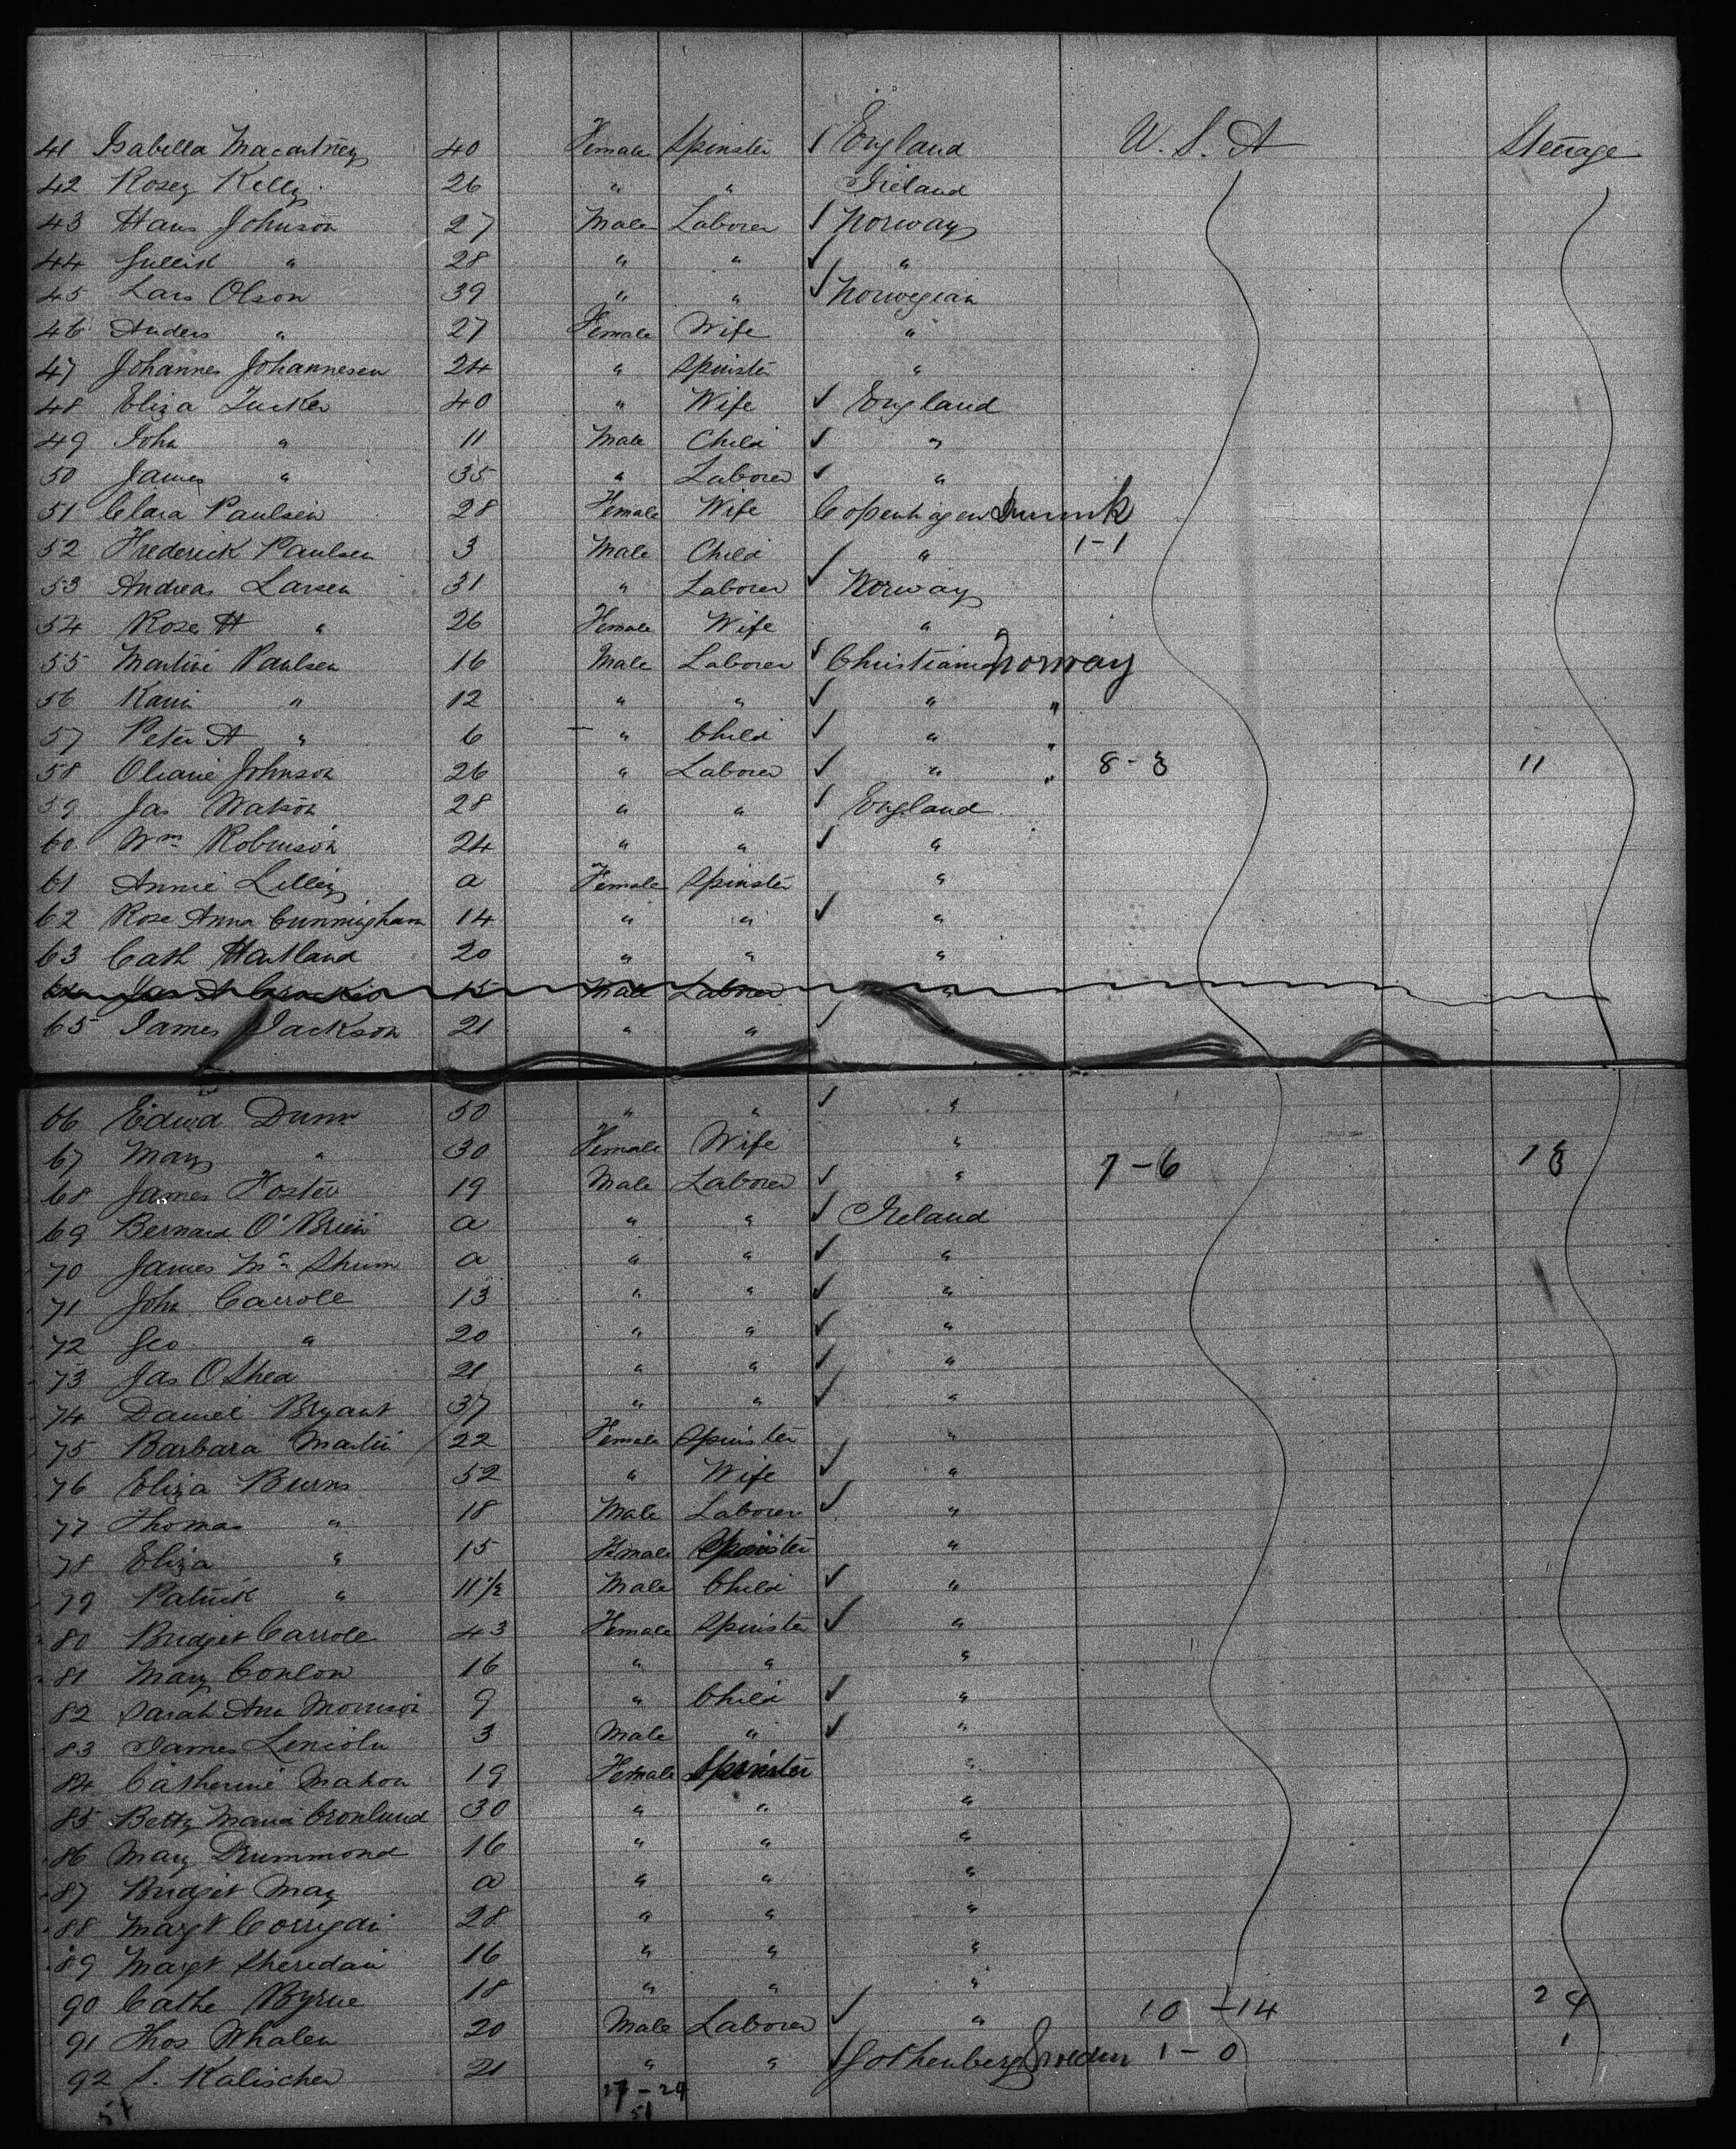 41 Isabella Macartney 40 Female Spinster ✓ England U. S. A Steerage
42 Rosey Kelly 26 " " Ireland
43 Hans Johnson 27 Male Laborer ✓ Norway
44 Gullik " 28 " " ✓ "
45 Lars Olson 39 " " ✓ Norwegian
46 Anders " 27 Female Wife "
47 Johannes Johannesen 24 " Spinster "
48 Eliza Tucker 40 " Wife ✓ England
49 John " 11 Male Child ✓ "
50 James " 35 " Laborer ✓ "
51 Clara Paulsen 28 Female Wife Copenhagen Denmk
52 Frederick Paulsen 3 Male Child ✓ " 1-1
53 Andreas Larsen 31 " Laborer ✓ Norway
54 Rose H " 26 Female Wife "
55 Martine Paulsen 16 Male Laborer ✓ Christiania Norway
56 Karin " 12 " " ✓ " "
57 Peter A " 6 " Child ✓ " "
58 Oliane Johnson 26 " Laborer ✓ " " 8-3 11
59 Jas Watson 28 " " ✓ England
60 Wm Robinson 24 " " ✓ "
61 Annie Lilley a Female Spinster "
62 Rose Anna Cunningham 14 " " ✓ "
63 Cath Hartland 20 " " "
Male Laborer "
65 James Jackson 21 " " ✓
66 Edwd Dunn 50 " " ✓ "
67 Mary " 30 Female Wife "
68 James Foster 19 Male Laborer ✓ " 7-6 13
69 Bernard O'Brien a " " ✓ Ireland
70 James Mc Shum a " " ✓ "
71 John Carrole 13 " " ✓ "
72 Geo " 20 " " ✓ "
73 Jas O Shea 21 " " ✓ "
74 Daniel Bryant 37 " " ✓ "
75 Barbara Martin 22 Female Spinster "
76 Eliza Burns 52 " Wife ✓ "
77 Thomas " 18 Male Laborer ✓ "
78 Eliza " 15 Female Spinster "
79 Patrick " 11½ Male Child ✓ "
80 Bridget Carrole 43 Female Spinster ✓ "
81 Mary Conlon 16 " " "
82 Sarah Ann Morrison 9 " Child ✓ "
83 James Lincoln 3 Male " ✓ "
84 Catherine Mahon 19 Female Spinster "
85 Betty Maria Cronlund 30 " " "
86 Mary Drummond 16 " " "
87 Bridget May a " " "
88 Margt 28 " " "
89 Margt Sheridan 16 " " "
90 Cathe Byrne 18 " " "
91 Thos Whalen 20 Male Laborer ✓ " 10-14 24
92 S. Kalischer 21 " " ✓ Gothenberg Sweden 1-0 1
51 27-24
51